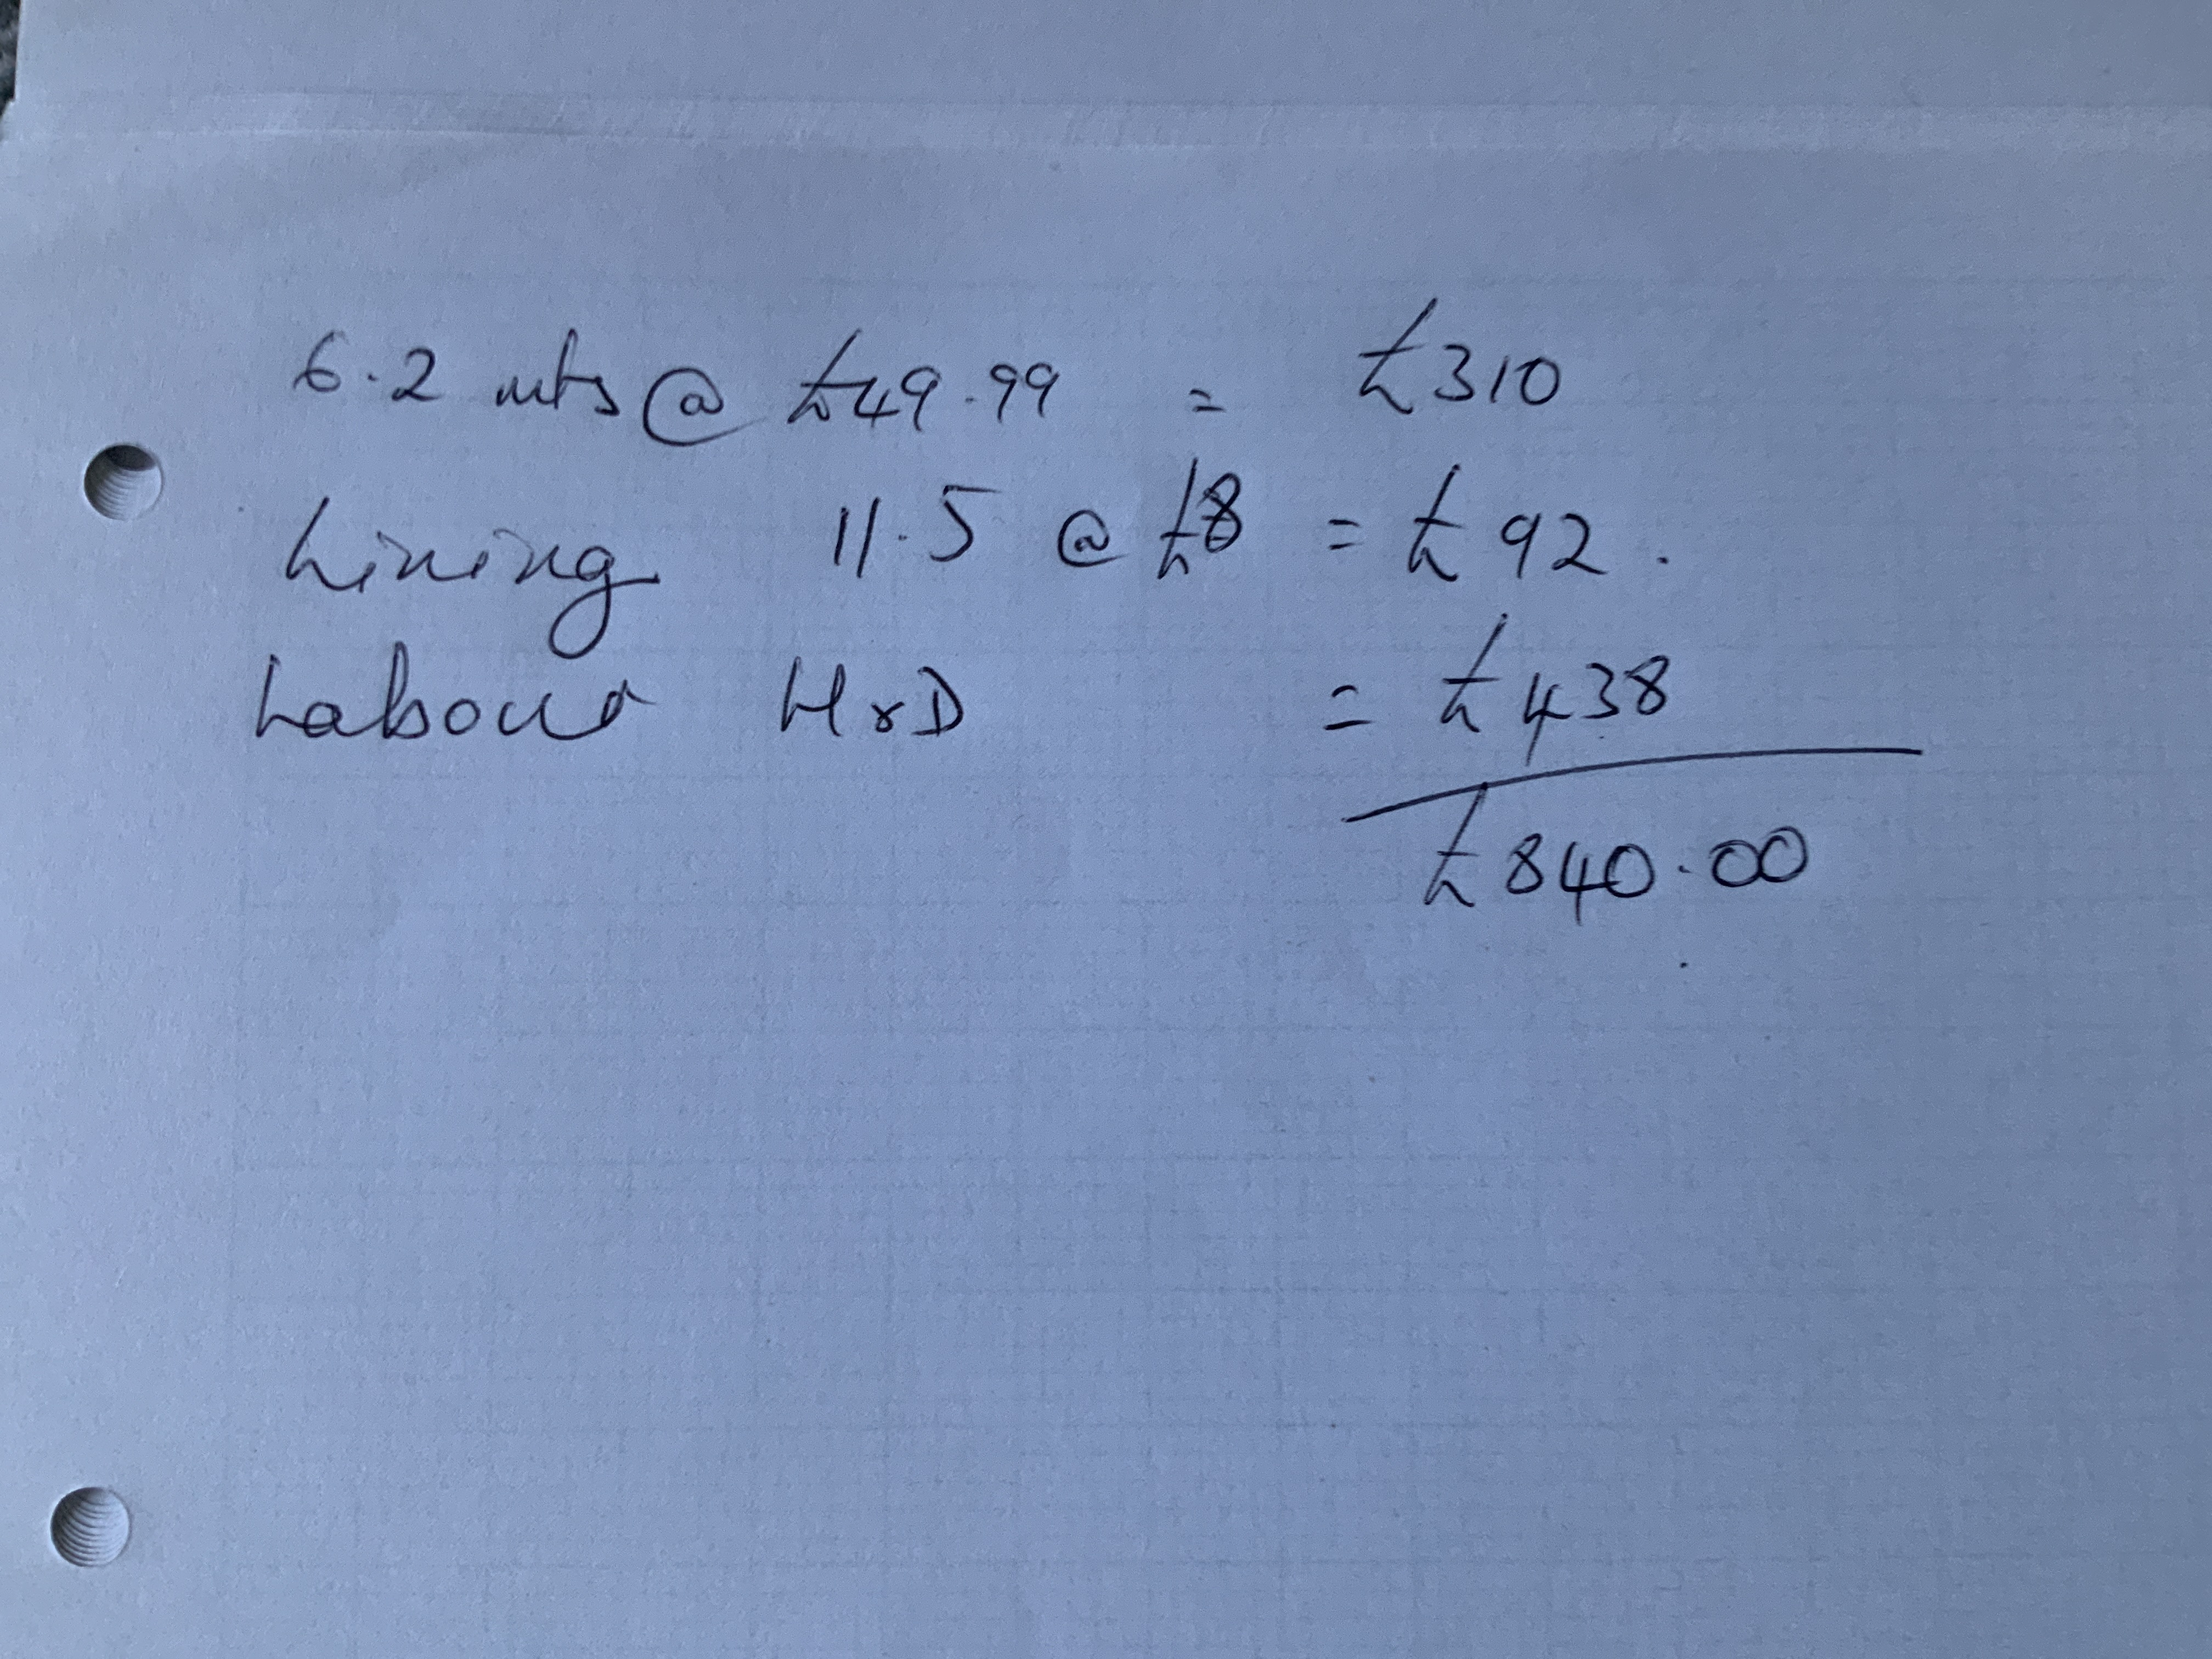 6.2 mts @ £49.99 = £310
Lining 11.5 @ £8 = £92.
Labour H x D = £438
£840.00